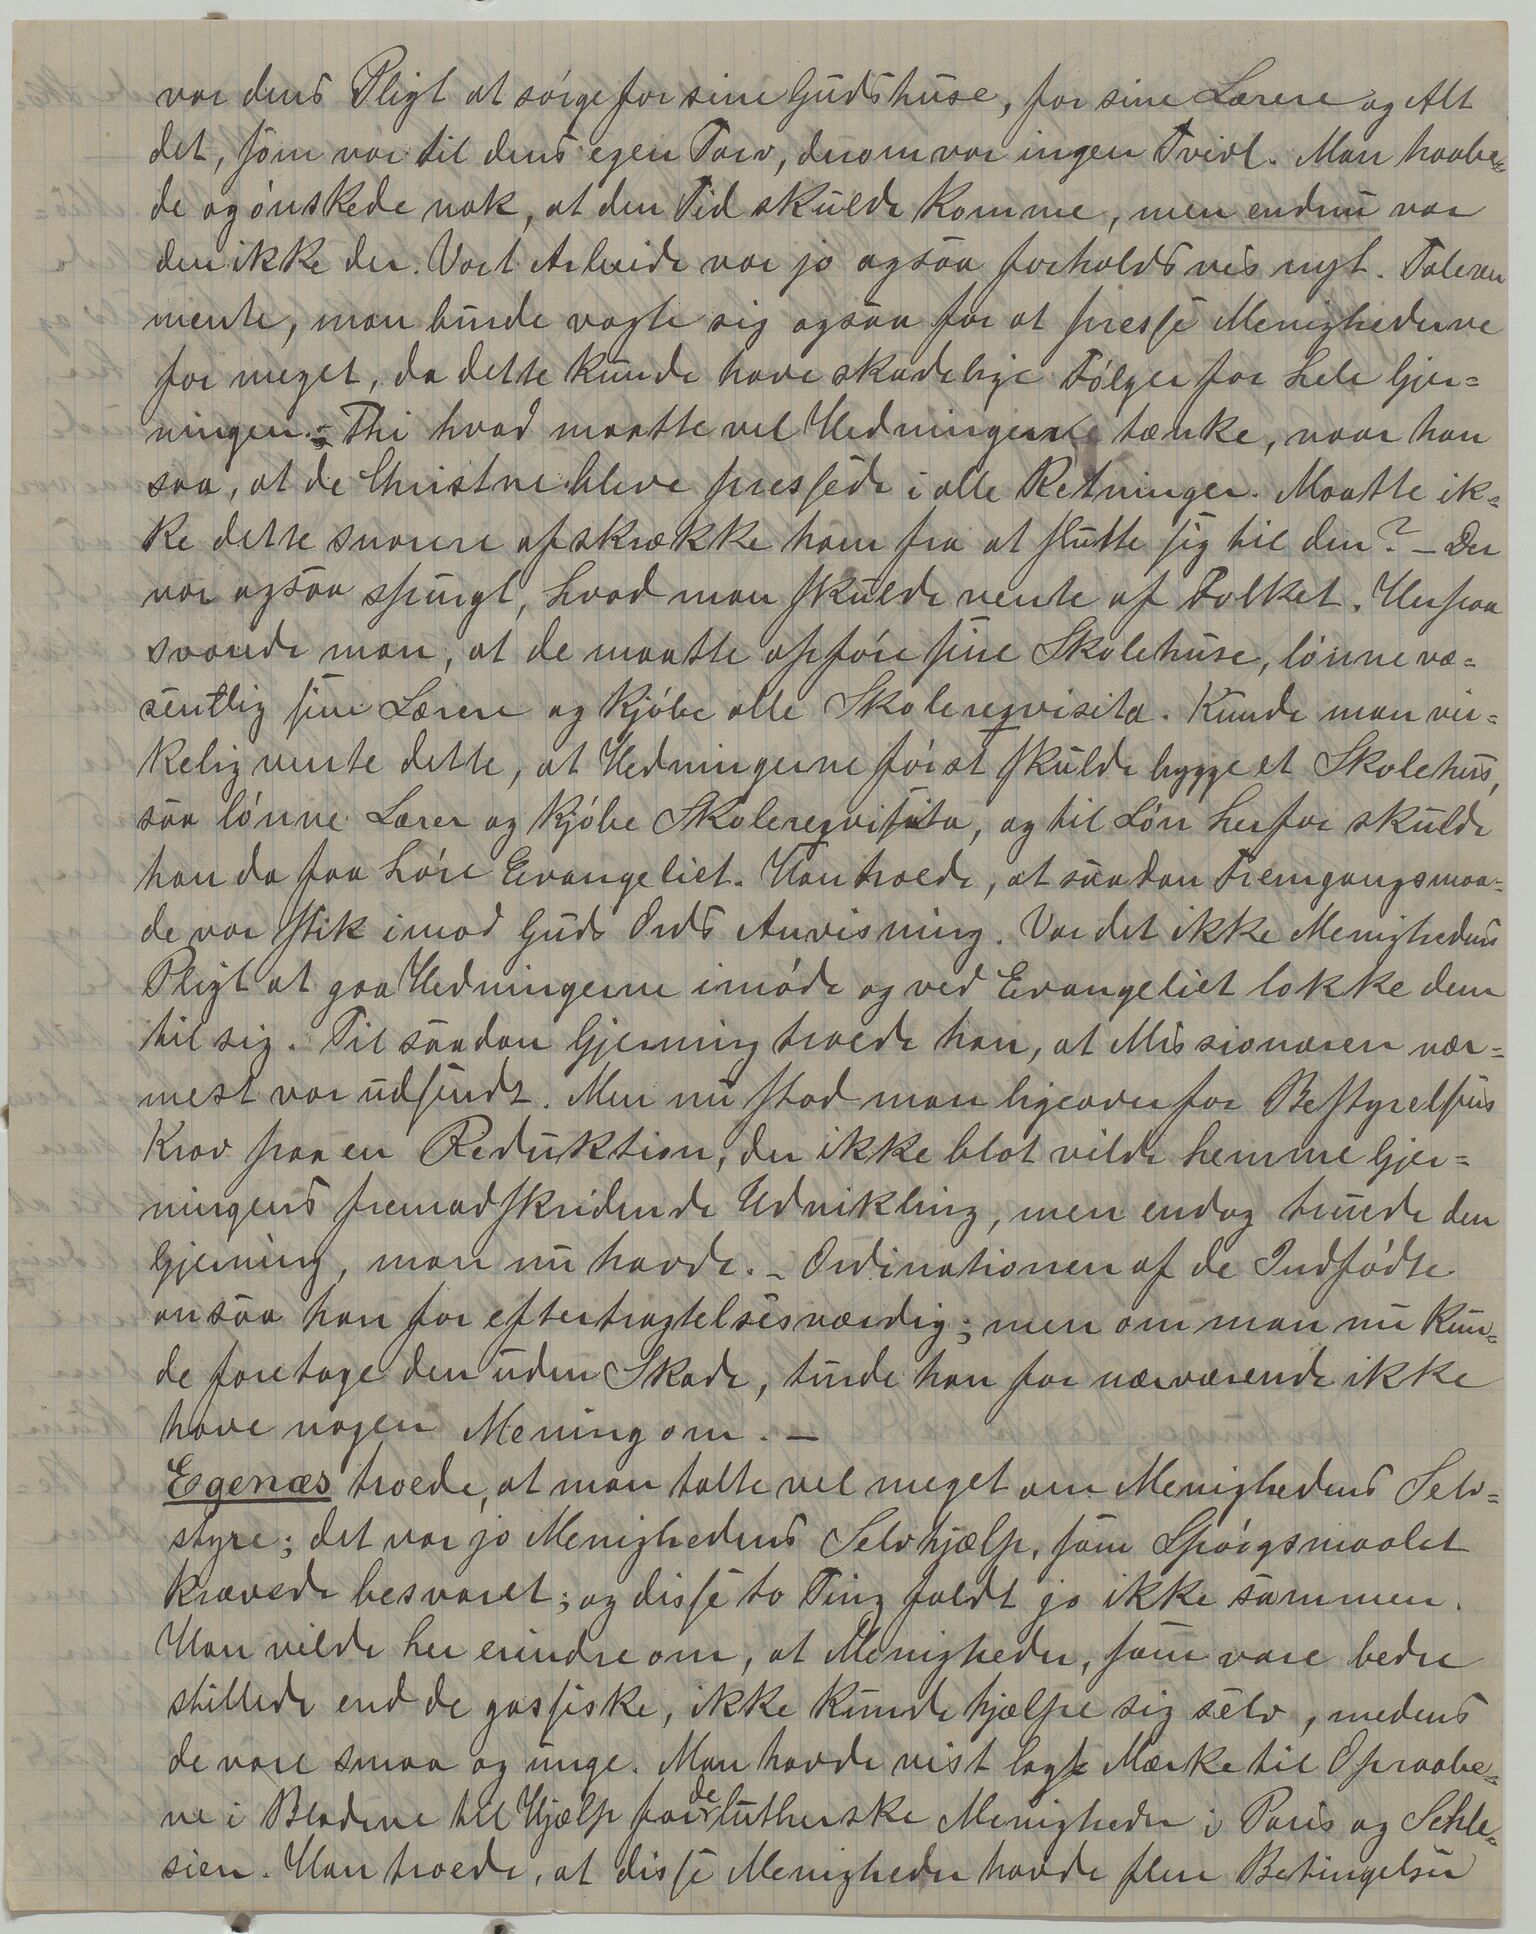 var dens Pligt at sørge for sine Gudshuse, for sine Lærere og Alt
det, som var til dens egen Tarv, derom var ingen Tvivl. Man haabe-
de og ønskede nok, at den Tid skulde komme, men endnu var
den ikke der. Vort Arbeide var jo ogsaa forholdsvis nyt. Taleren
mente, man burde vogte sig ogsaa for at presse Menighederne
for meget, da dette kunde have skadelige Følger for hele Gjer=
ningen. – Thi hvad maatte vel Hedningerne tænke, naar han
saa, at de Christne bleve pressede i alle Retninger. Maatte ik=
ke dette snarere afskrække ham fra at slutte sig til den? – Der
var ogsaa spurgt, hvad man skulde vente af Folket. Herpaa
svarede man, at de maatte opføre sine Skolehuse, lønne væ=
sentlig sine Lærere og kjøbe alle Skolereqvisita. Kunde man vir=
kelig vente dette, at Hedningerne først skulde bygge et Skolehus,
saa lønne Lærer og kjøbe Skolereqvisita, og til Løn herfor skulde
han da faa høre Evangeliet. Han troede, at saadan Fremgangsmaa=
de var stik imod Guds Ords Anvisning. Var det ikke Menighedens
Pligt at gaa Hedningerne imøde og ved Evangeliet lokke dem
til sig. Til saadan Gjerning troede han, at Missionæren nær=
mest var udsendt. Men nu stod man ligeoverfor Bestyrelsens
Krav paa en Reduktion, der ikke blot vilde hemme Gjer=
ningens fremadskridende Udvikling, men endog truede den
Gjerning, man nu havde. – Ordinationen af de Indfødte
ansaa han for eftertragtelsesværdig; men om man nu kun=
de foretage den uden Skade, turde han for nærværende ikke
have nogen Mening om. –
Egenæs troede, at man talte vel meget om Menighedens Selv=
styre; det var jo Menighedens Selvhjælp, som Spørgsmaalet
krævede besvaret; og disse to Ting faldt jo ikke sammen.
Han vilde her erindre om, at Menigheder, som vare bedre
stillede end de gassiske, ikke kunde hjælpe sig selv, medens
de vare smaa og unge. Man havde vist lagt Mærke til Opraabe=
ne i Bladene til Hjælp for de lutherske Menigheder i Paris og Schle=
sien. Han troede, at disse Menigheder havde flere Betingelser